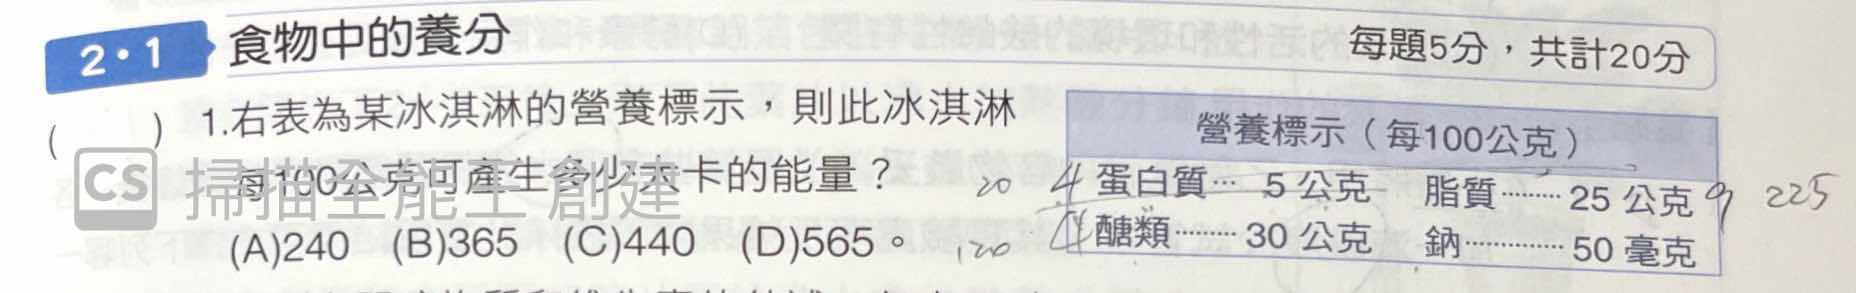 2·1 食物中的養分 每題5分，共計20分
( ) 1.右表為某冰淇淋的營養標示，則此冰淇淋
每100公克可產生多少大卡的能量？
(A)240 (B)365 (C)440 (D)565。
營養標示（每100公克）
20 4 蛋白質… 5 公克 脂質……25 公克 9 225
120 4 醣類……30 公克 鈉…………50 毫克
CS 掃描全能王 創建